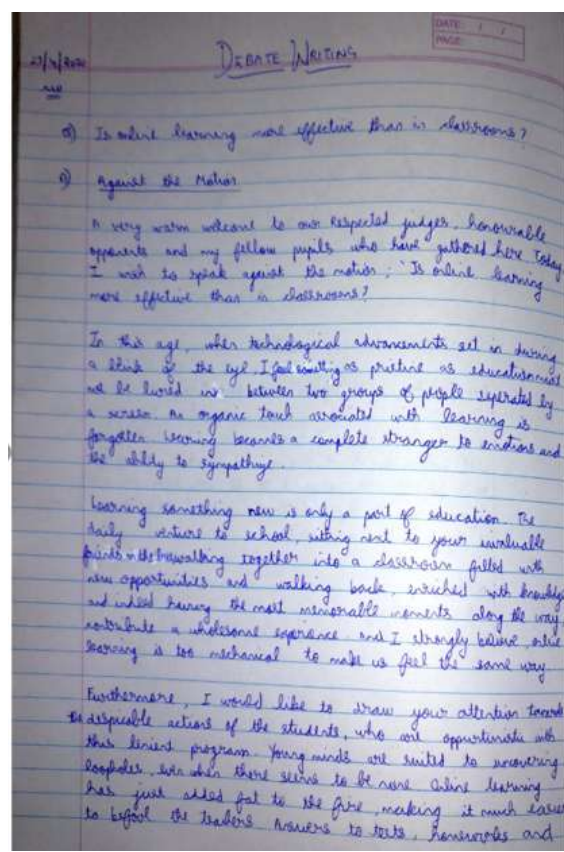 DATE: / /
PAGE:
DEBATE WRITING
Q) Is online learning more effective than in classrooms?
A) Against the Motion
A very warm welcome to our Respected judges, honourable
opponents and my fellow pupils who have gathered here today.
I wish to speak against the motion; 'Is online learning
more effective than in classrooms?
In this age, when technological advancements set in during
a blink of the eye, I feel something as pristine as education must
not be lured in between two groups of people seperated by
a screen. An organic touch associated with learning is
forgotten. Learning becomes a complete stranger to emotions and
the ability to sympathize.
Learning something new is only a part of education. The
daily venture to school, sitting next to your invaluable
friends in the walking together into a classroom filled with
new opportunities and walking back, enriched with knowledge
and indeed having the most memorable moments along the way,
contribute a wholesome experience and I strongly believe, online
learning is too mechanical to make us feel the same way
Furthermore, I would like to draw your attention towards
the despicable actions of the students, who are oppurtunistic with
this lenient program. Young minds are suited to uncovering
loopholes, even when there seems to be none. Online learning
has just added fat to the fire, making it much easier
to befool the teachers. Answers to tests, homeworks and